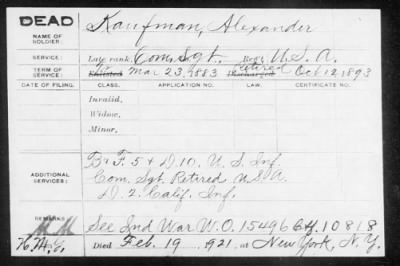 DEAD
NAME OF SOLDIER:
Kaufman, Alexander
SERVICE:
Late rank, Com. Sgt., Regt U.S.A.
TERM OF SERVICE:
Enlisted Mar 23, 1883
Discharged retired Oct 12, 1893
DATE OF FILING.
CLASS.
APPLICATION NO.
LAW.
CERTIFICATE NO.
Invalid,
Widow,
Minor,
ADDITIONAL SERVICES:
B & F. 5 & D. 10. U. S. Inf.
Com. Sgt. Retired U.S.A.
D. 2. Calif. Inf.
REMARKS:
See Ind War W.O. 15496 Ctf. 10818
Died Feb. 19, 1921, at New York, N.Y.